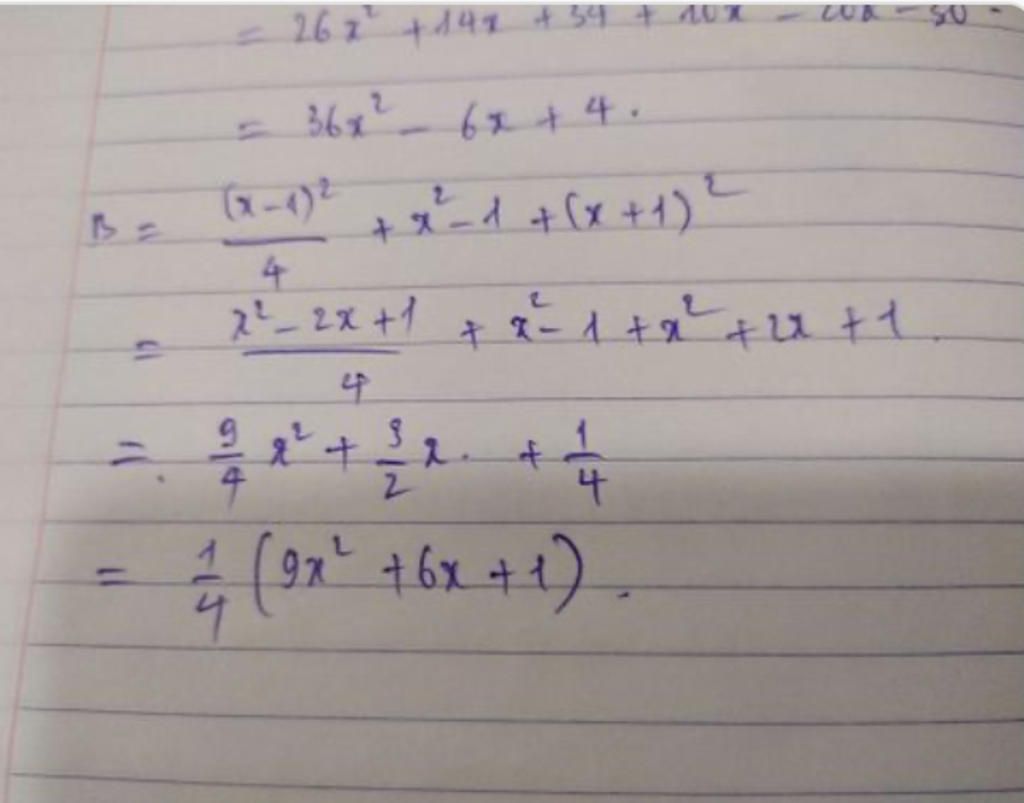 = 26x² + 14x + 34 + 10x - 20x - 30
= 36x² - 6x + 4.
B = (x-1)²/4 + x² - 1 + (x+1)²
= (x² - 2x + 1)/4 + x² - 1 + x² + 2x + 1.
= 9/4 x² + 3/2 x. + 1/4
= 1/4 (9x² + 6x + 1).